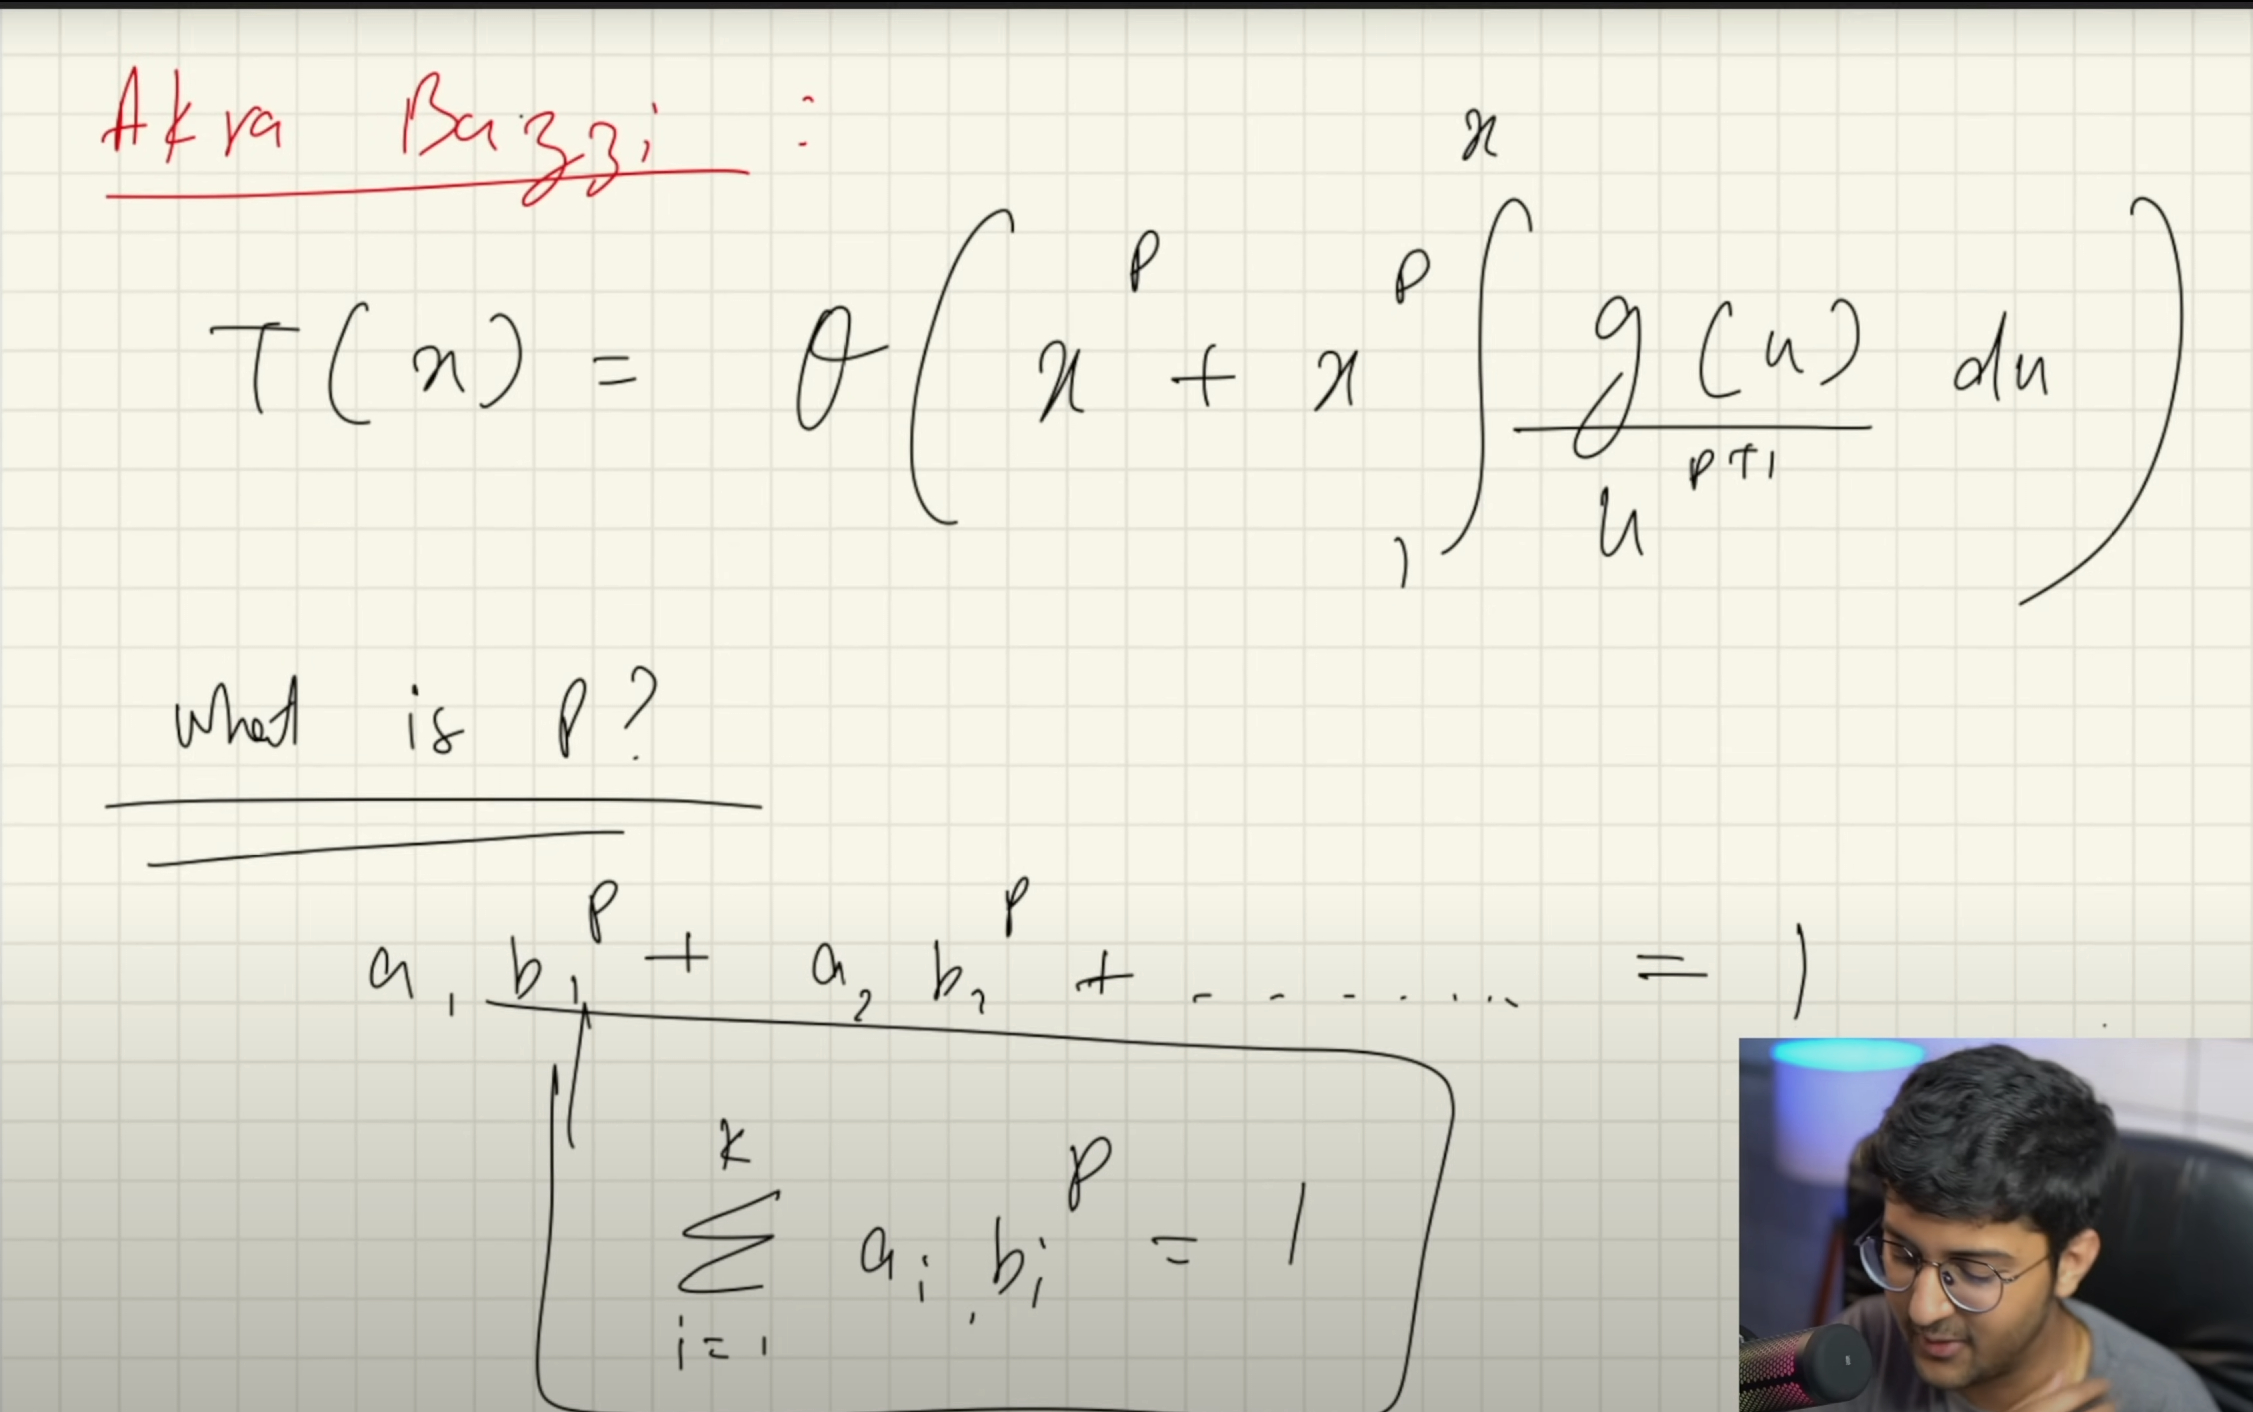 Akra Bazzi :
T(x) = θ( x^p + x^p ∫_1^x g(u)/u^{p+1} du )
What is p?
a_1 b_1^p + a_2 b_2^p + - - - - - - = 1
∑_{i=1}^{k} a_i b_i^p = 1